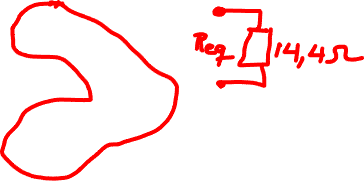 Req 14,4Ω